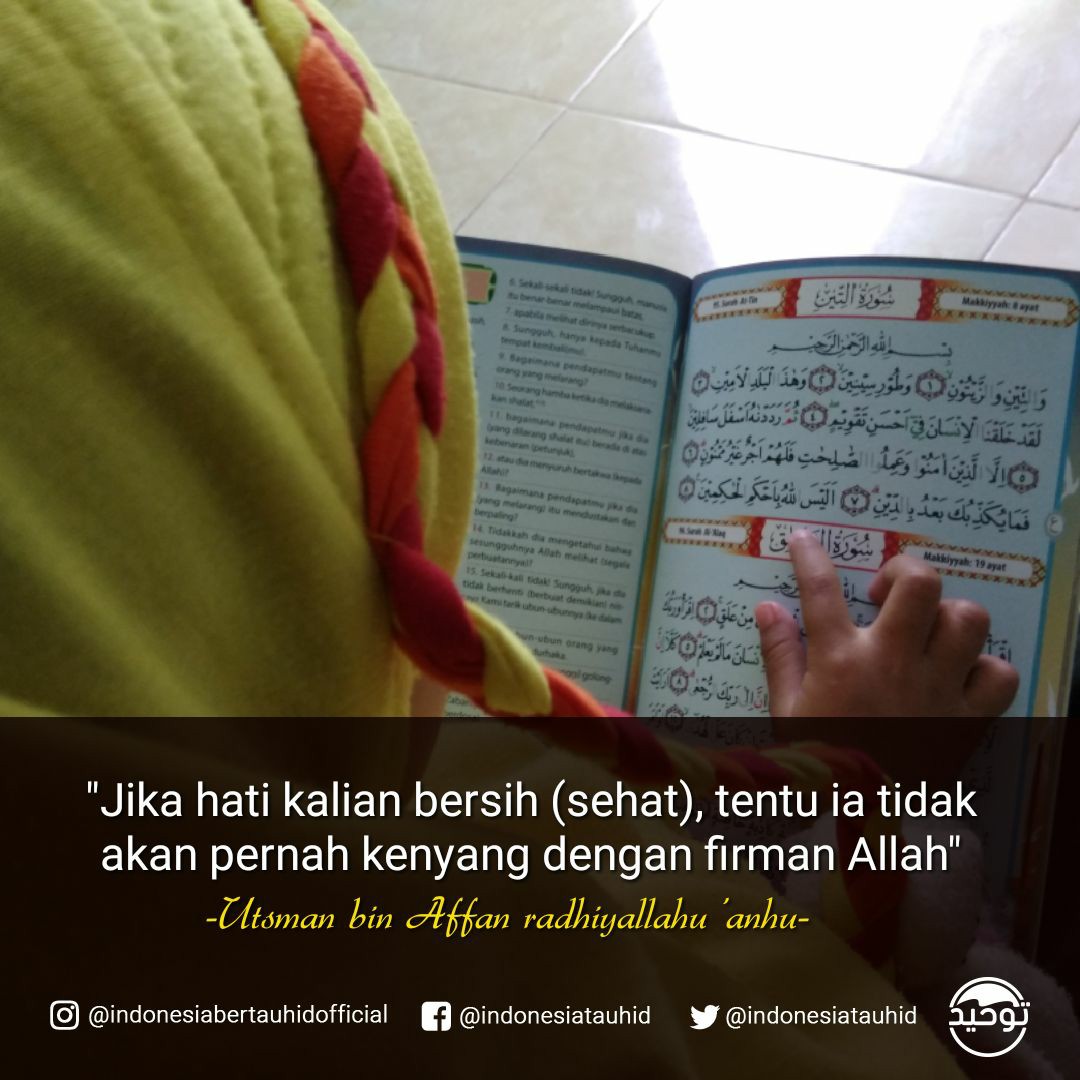 6. Sekali-sekali tidak! Sungguh, manusia
itu benar-benar melampaui batas,
7. apabila melihat dirinya serba cukup.
8. Sungguh, hanya kepada Tuhanmu
tempat kembali(mu).
9. Bagaimana pendapatmu tentang
orang yang melarang?
10. Seorang hamba ketika dia melaksana-
kan shalat,
11. bagaimana pendapatmu jika dia
(yang dilarang shalat itu) berada di atas
kebenaran (petunjuk),
12. atau dia menyuruh bertakwa (kepada
Allah)?
13. Bagaimana pendapatmu jika dia
(yang melarang) itu mendustakan dan
berpaling?
14. Tidakkah dia mengetahui bahwa
sesungguhnya Allah melihat (segala
perbuatannya)?
15. Sekali-kali tidak! Sungguh, jika dia
tidak berhenti (berbuat demikian) nis-
Kami tarik ubun-ubunnya (ke dalam
ubun-ubun orang yang
durhaka.
95. Surah At-Tin
سُورَةُ التِّيْنِ
Makkiyyah: 8 ayat
بِسْمِ اللهِ الرَّحْمٰنِ الرَّحِيْمِ
وَالتِّيْنِ وَالزَّيْتُوْنِ ١ وَطُوْرِ سِيْنِيْنَ ٢ وَهٰذَا الْبَلَدِ الْاَمِيْنِ ٣
لَقَدْ خَلَقْنَا الْاِنْسَانَ فِيْٓ اَحْسَنِ تَقْوِيْمٍ ٤ ثُمَّ رَدَدْنٰهُ اَسْفَلَ سَافِلِيْنَ
٥ اِلَّا الَّذِيْنَ اٰمَنُوْا وَعَمِلُوا الصّٰلِحٰتِ فَلَهُمْ اَجْرٌ غَيْرُ مَمْنُوْنٍ ٦
فَمَا يُكَذِّبُكَ بَعْدُ بِالدِّيْنِ ٧ اَلَيْسَ اللهُ بِاَحْكَمِ الْحٰكِمِيْنَ ٨
96. Surah Al-'Alaq
سُورَةُ الْعَلَق
Makkiyyah: 19 ayat
"Jika hati kalian bersih (sehat), tentu ia tidak
akan pernah kenyang dengan firman Allah"
-Utsman bin Affan radhiyallahu 'anhu-
@indonesiabertauhidofficial @indonesiatauhid @indonesiatauhid توحيد